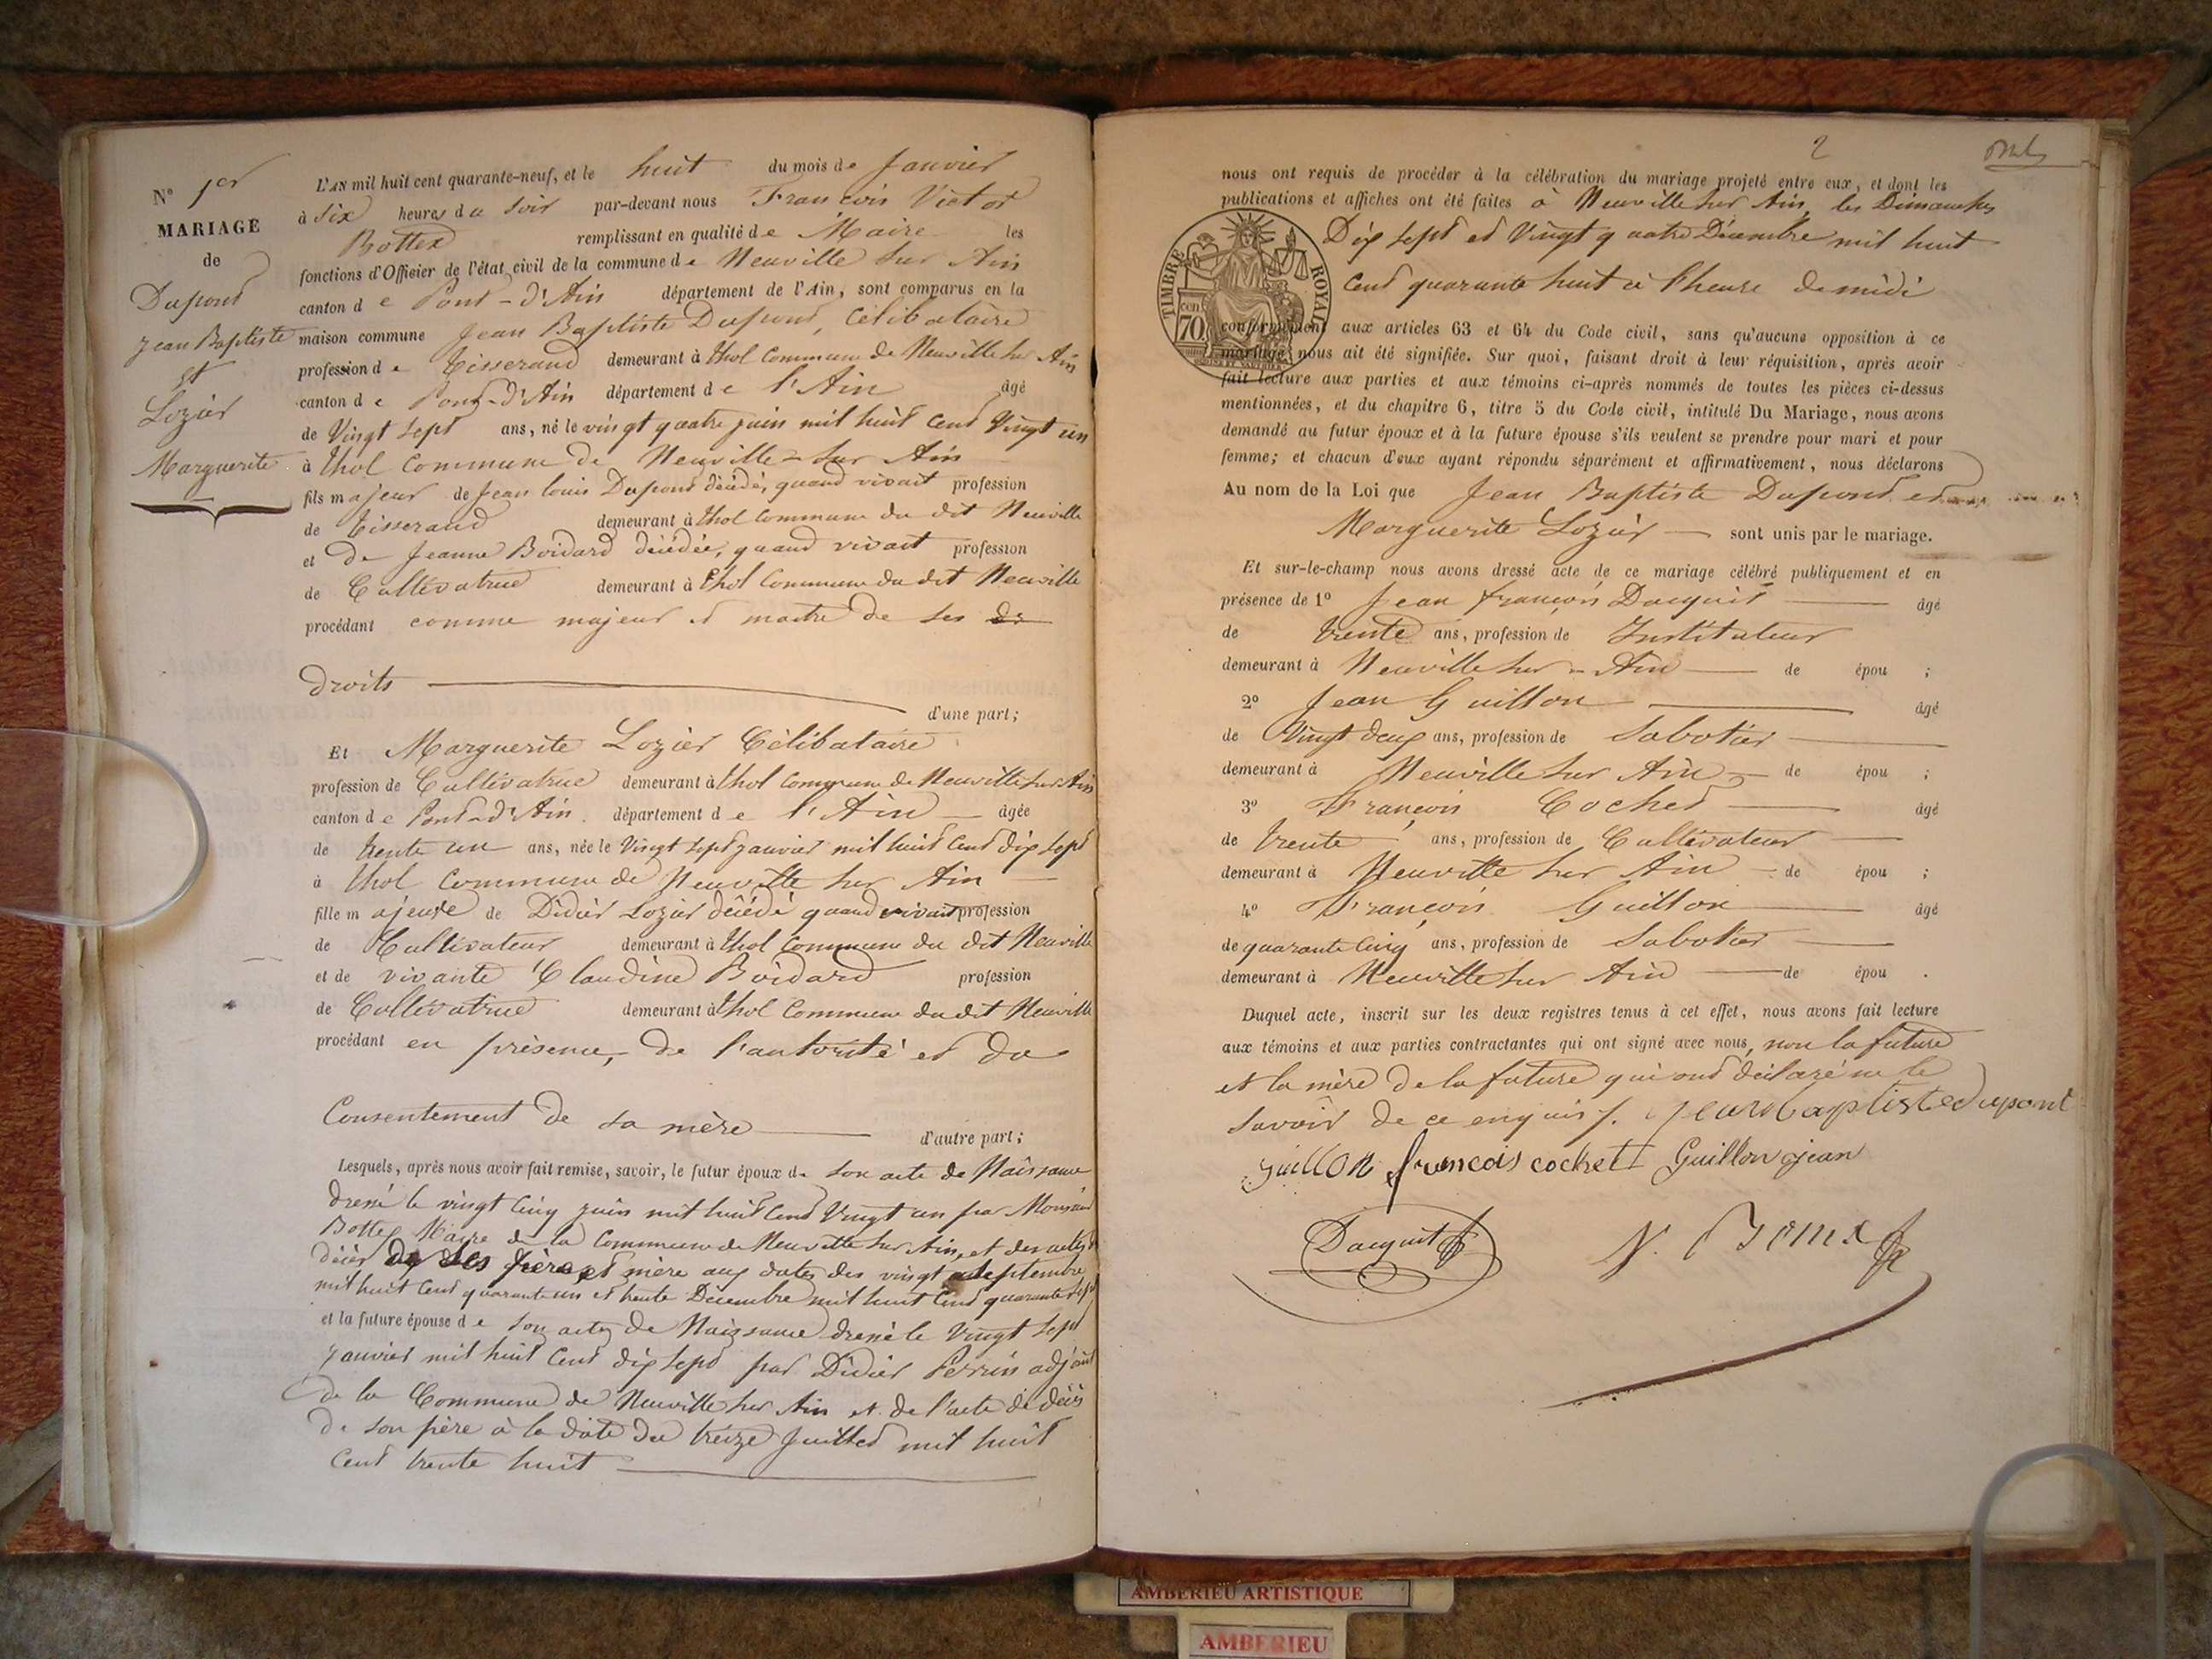 N° 1er
MARIAGE
de
Dupont
Jean Baptiste
et
Lozier
Marguerite
L'AN mil huit cent quarante-neuf, et le huit du mois de Janvier
à Six heures du Soir par-devant nous François Victor
Bottex remplissant en qualité de Maire les
fonctions d'Officier de l'état civil de la commune de Neuville sur Ain
canton de Pont-d'Ain département de l'Ain, sont comparus en la
maison commune Jean Baptiste Dupont, Célibataire
profession de Tisserand demeurant à Thol Commune de Neuville sur Ain
canton de Pont-d'Ain département de l'Ain âgé
de Vingt Sept ans, né le vingt quatre juin mil huit Cent Vingt un
à Thol Commune de Neuville-sur Ain
fils majeur de Jean louis Dupont décédé, quand vivait profession
de Tisserand demeurant à Thol Commune du dit Neuville
et de Jeanne Boidard décédée, quand vivait profession
de Cultivatrice demeurant à Thol Commune du dit Neuville
procédant comme majeur et maitre de ses dr
droits
d'une part;
Et Marguerite Lozier Célibataire
profession de Cultivatrice demeurant à Thol Commune de Neuville sur Ain
canton de Pont-d'Ain département de l'Ain âgée
de trente un ans, née le Vingt Sept janvier mil huit Cent dix Sept
à Thol Commune de Neuville sur Ain
fille majeure de Didier Lozier décédé quand vivait profession
de Cultivateur demeurant à Thol Commune du dit Neuville
et de vivante Claudine Boidard profession
de Cultivatrice demeurant à Thol Commune du dit Neuville
procédant en présence, de l'autorité et du
Consentement de sa mère
d'autre part;
Lesquels, après nous avoir fait remise, savoir, le futur époux de Son acte de Naissance
dressé le vingt Cinq juin mil huit Cent Vingt un par Monsieur
Bottex Maire de la Commune de Neuville sur Ain, et des actes de
décès de Ses père et mère aux dates des vingt Septembre
mil huit Cent quarante un et trente Décembre mil huit Cent quarante Sept
et la future épouse de Son acte de Naissance dressé le Vingt Sept
janvier mil huit Cent dix Sept par Didier Perrin adjoint
de la Commune de Neuville sur Ain et de l'acte de décès
de son père à la date du treize Juillet mil huit
Cent trente huit
2
nous ont requis de procéder à la célébration du mariage projeté entre eux, et dont les
publications et affiches ont été faites à Neuville sur Ain, les Dimanches
Dix Sept et Vingt quatre Décembre mil huit
Cent quarante huit à l'heure de midi
TIMBRE ROYAL
cen. 70
conformément aux articles 63 et 64 du Code civil, sans qu'aucune opposition à ce
mariage nous ait été signifiée. Sur quoi, faisant droit à leur réquisition, après avoir
fait lecture aux parties et aux témoins ci-après nommés de toutes les pièces ci-dessus
mentionnées, et du chapitre 6, titre 5 du Code civil, intitulé Du Mariage, nous avons
demandé au futur époux et à la future épouse s'ils veulent se prendre pour mari et pour
femme; et chacun d'eux ayant répondu séparément et affirmativement, nous déclarons
Au nom de la Loi que Jean Baptiste Dupont et
Marguerite Lozier sont unis par le mariage.
Et sur-le-champ nous avons dressé acte de ce mariage célébré publiquement et en
présence de 1° Jean françois Dacquit âgé
de trente ans, profession de Instituteur
demeurant à Neuville sur-Ain de épou ;
2° Jean Guillon âgé
de Vingt deux ans, profession de Sabotier
demeurant à Neuville sur Ain de épou ;
3° François Cochet âgé
de trente ans, profession de Cultivateur
demeurant à Neuville sur Ain de épou ;
4° François Guillon âgé
de quarante Cinq ans, profession de Sabotier
demeurant à Neuville sur Ain de épou .
Duquel acte, inscrit sur les deux registres tenus à cet effet, nous avons fait lecture
aux témoins et aux parties contractantes qui ont signé avec nous, non la future
et la mère de la future qui ont déclaré ne le
savoir de ce enquis. jean baptiste dupont
guillon francois cochet Guillon jean
Dacquit
AMBERIEU ARTISTIQUE
AMBERIEU